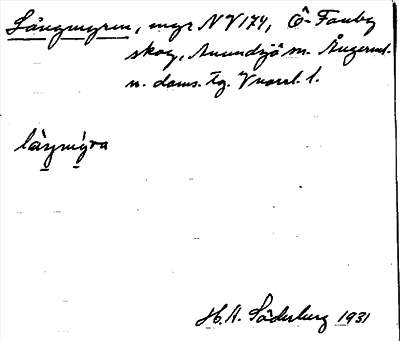 Långmyren, myr NV174, Ö-Fanby
skog, Anundsjö sn. Ångerml.
n. doms. tg. V norrl. l.
långmýra
H. A. Söderberg 1931